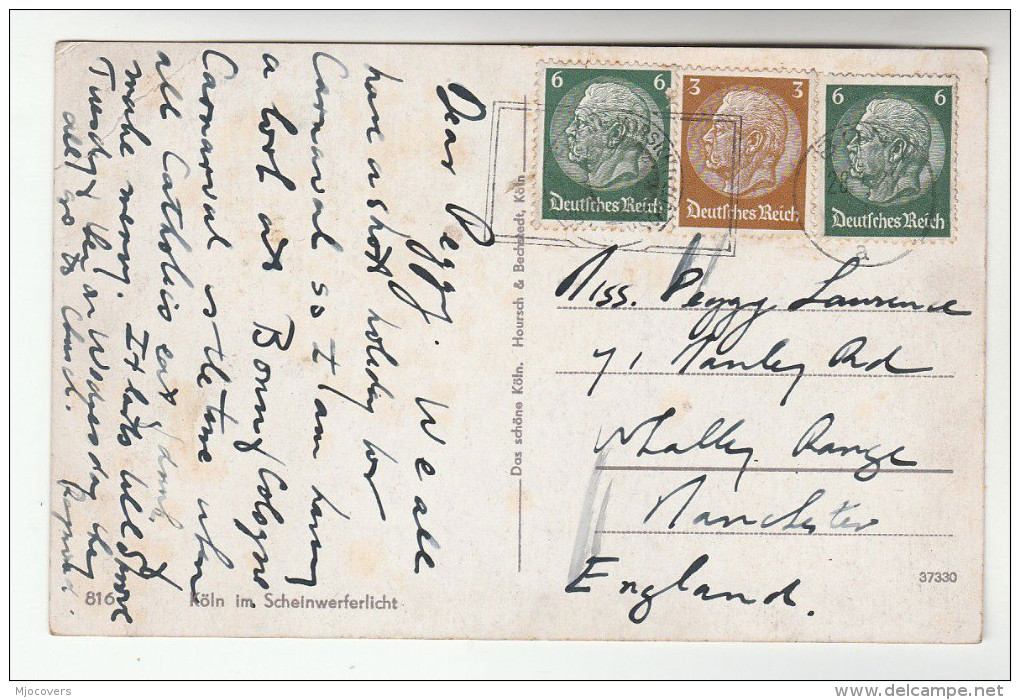 Dear Peggy. We all
have a short holiday for
Carnaval so I am having
a look at Bonn/Cologne
Carnaval is the time when
all Catholics eat/drink
make merry. It lasts
Tuesday then on Wednesday they
all go to Church.
816 Köln im Scheinwerferlicht
Das schöne Köln. Hoursch & Bechstedt, Köln
6 6
Deutsches Reich
3 3
Deutsches Reich
6 6
Deutsches Reich
a
Miss. Peggy Lawrence
71 Manley Rd
Whalley Range
Manchester
England.
37330
Mjocovers
www.delcampe.net